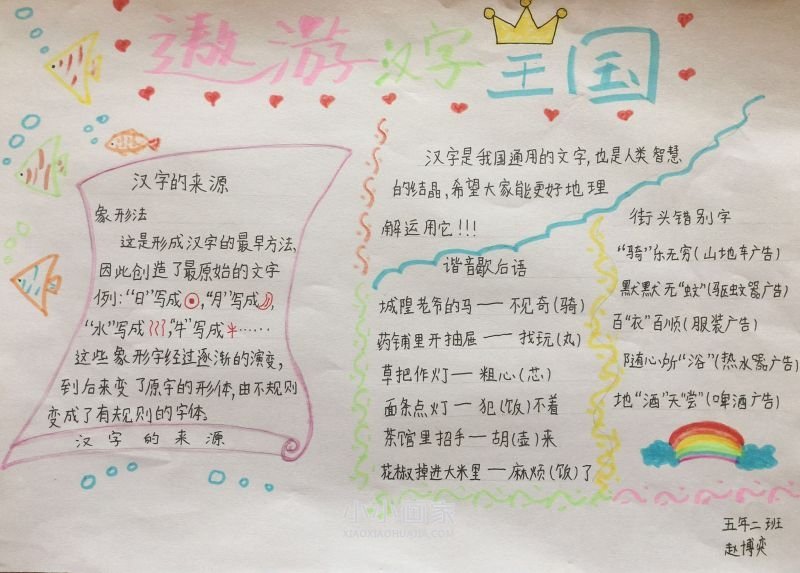 遨游汉字王国
汉字的来源
象形法
这是形成汉字的最早方法,
因此创造了最原始的文字
例:“日”写成 ,“月”写成 ,
“水”写成 ,“牛”写成 ……
这些象形字经过逐渐的演变,
到后来变了原字的形体,由不规则
变成了有规则的字体。
汉字的来源
汉字是我国通用的文字,也是人类智慧
的结晶,希望大家能更好地理
解运用它!!!
谐音歇后语
城隍老爷的马——不见奇(骑)
药铺里开抽屉——找玩(丸)
草把作灯——粗心(芯)
面条点灯——犯(饭)不着
茶馆里招手——胡(壶)来
花椒掉进大米里——麻烦(饭)了
街头错别字
“骑”乐无穷(山地车广告)
默默无“蚊”(驱蚊器广告)
百“衣”百顺(服装广告)
随心所“浴”(热水器广告)
地“酒”天“尝”(啤酒广告)
五年二班
赵博奕
小小画家
XIAOXIAOHUAJIA.COM